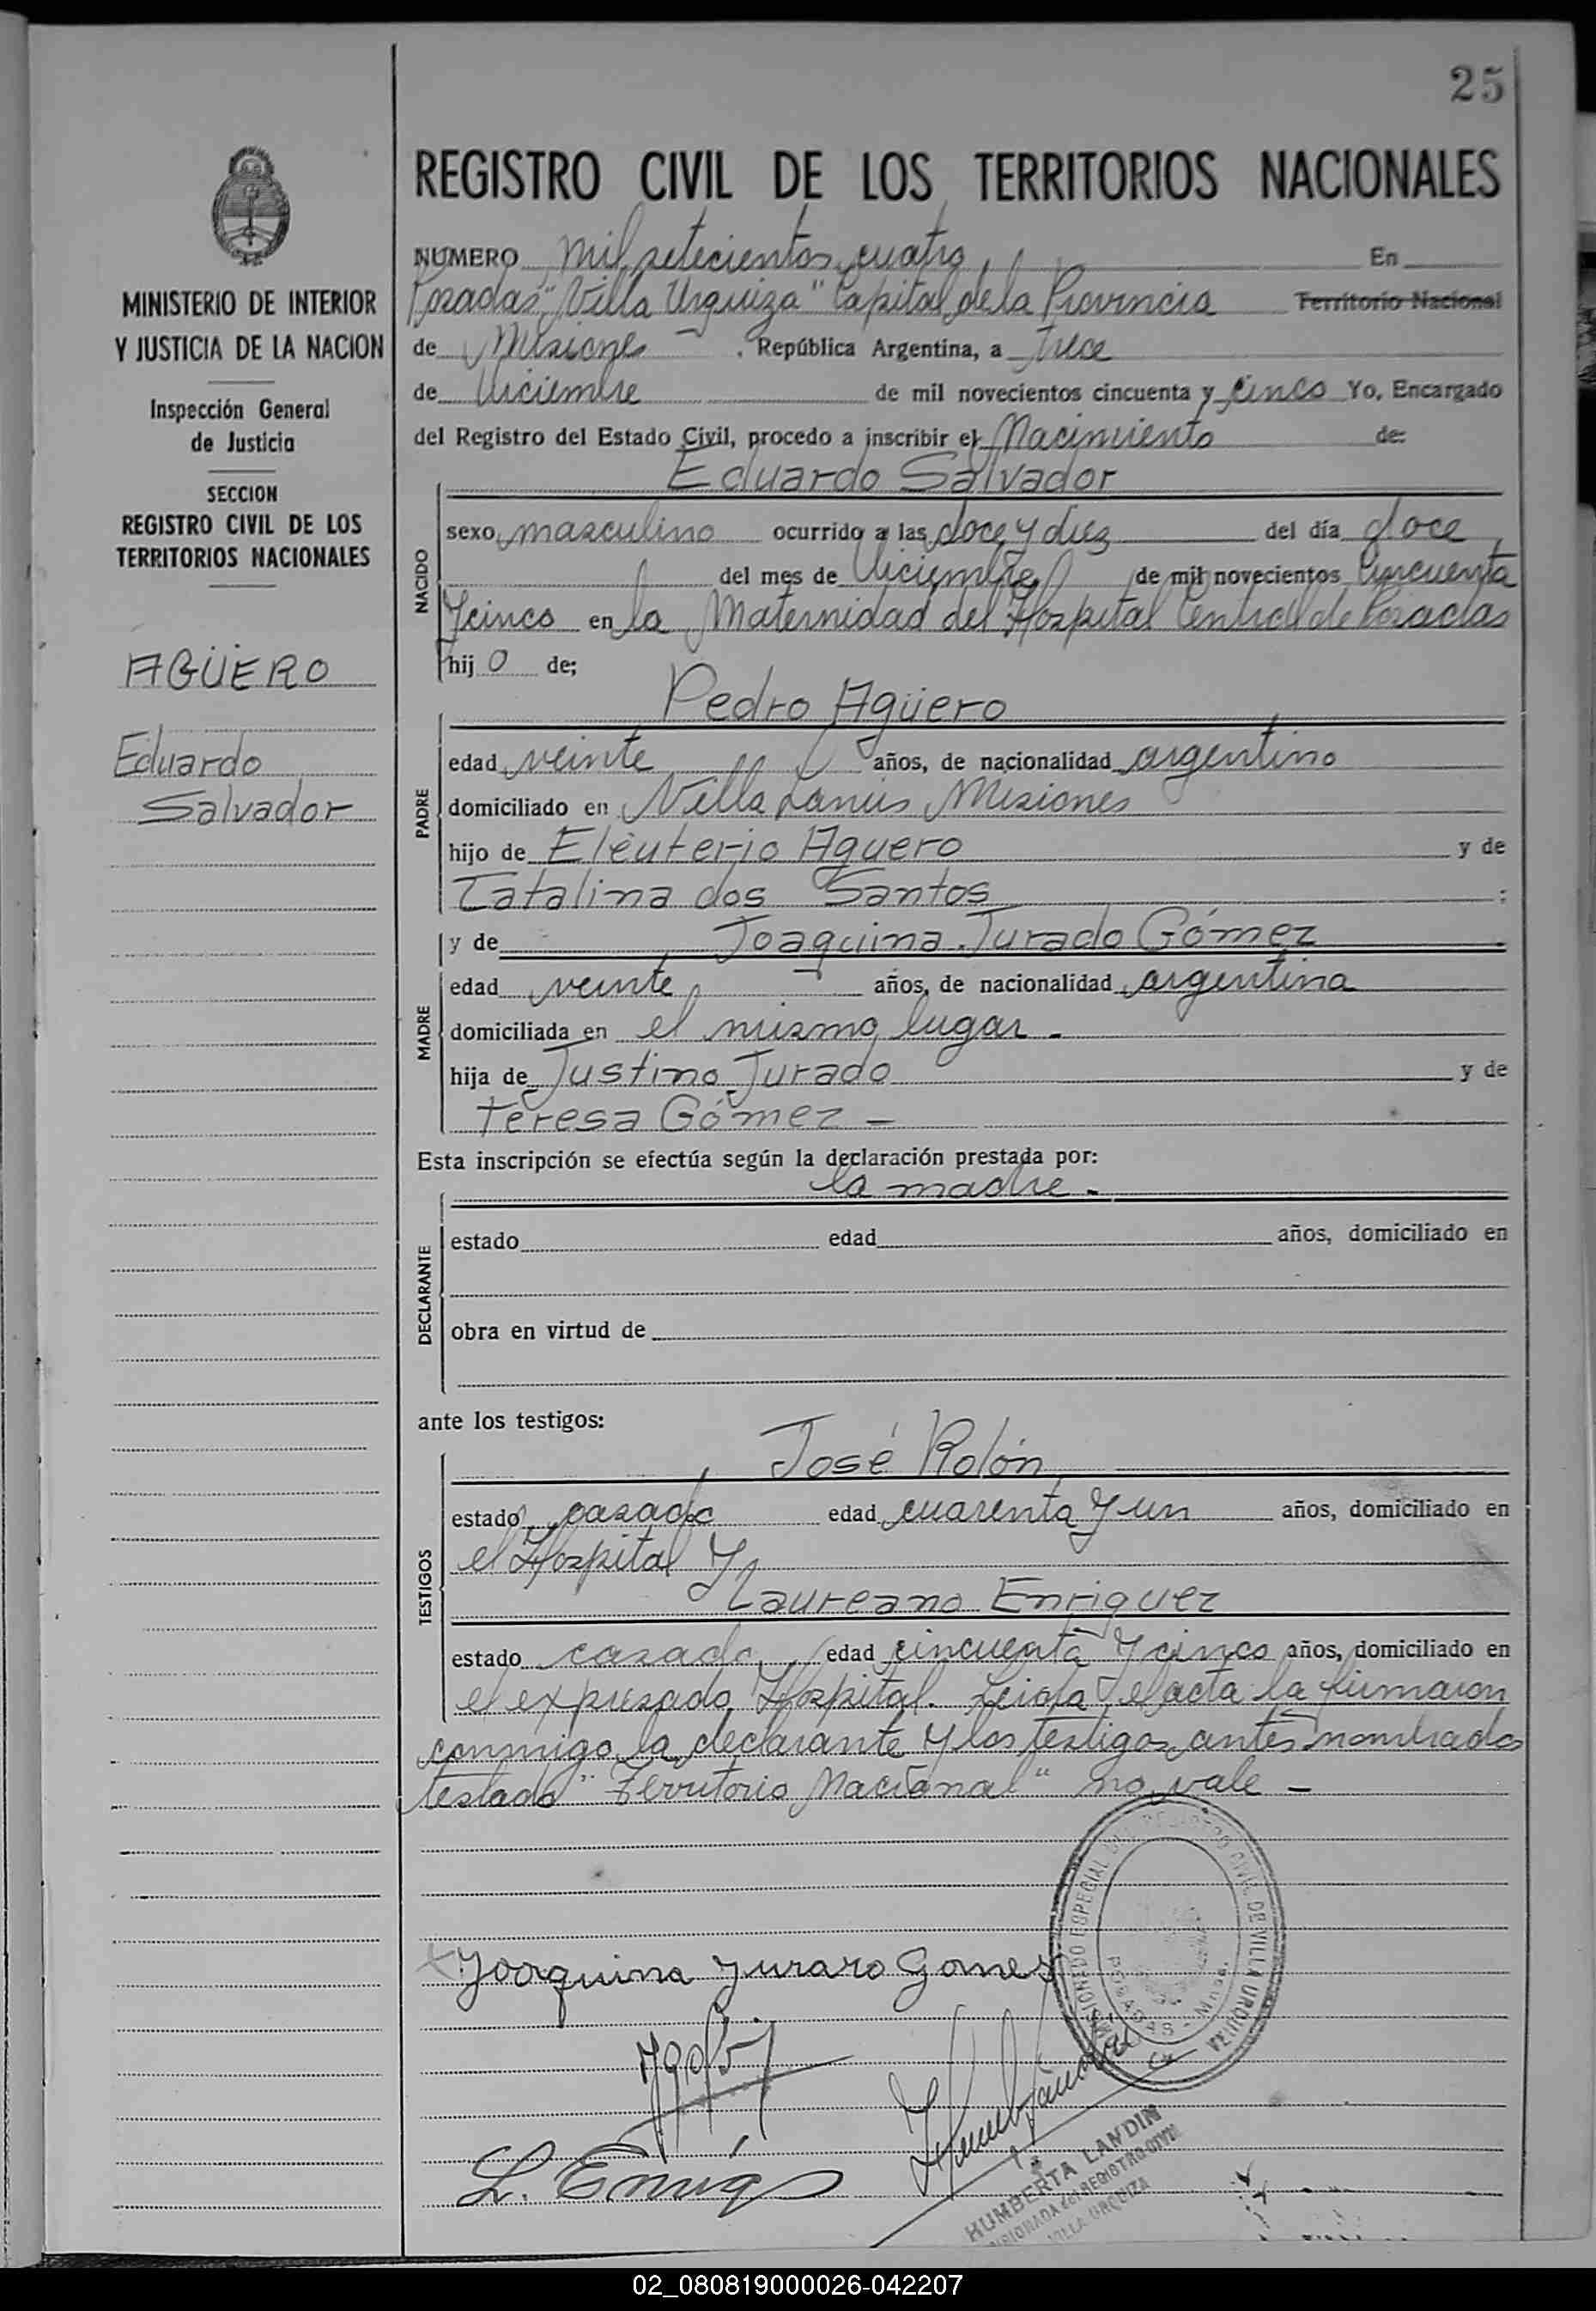 25
REGISTRO CIVIL DE LOS TERRITORIOS NACIONALES
NUMERO mil setecientos cuatro En
Posadas "Villa Urquiza" Capital de la Provincia Territorio Nacional
de Misiones, República Argentina, a trece
de Diciembre de mil novecientos cincuenta y cinco Yo, Encargado
del Registro del Estado Civil, procedo a inscribir el Nacimiento de:
MINISTERIO DE INTERIOR
Y JUSTICIA DE LA NACION
Inspección General
de Justicia
SECCION
REGISTRO CIVIL DE LOS
TERRITORIOS NACIONALES
AGÜERO
Eduardo
Salvador
NACIDO
Eduardo Salvador
sexo masculino ocurrido a las doce y diez del día doce
del mes de Diciembre de mil novecientos cincuenta
y cinco en la Maternidad del Hospital Central de Posadas
hij o de;
PADRE
Pedro Agüero
edad veinte años, de nacionalidad argentino
domiciliado en Villa Lanús Misiones
hijo de Eleuterio Aguero y de
Catalina dos Santos ;
MADRE
y de Joaquina Jurado Gómez
edad veinte años, de nacionalidad argentina
domiciliada en el mismo lugar -
hija de Justino Jurado y de
Teresa Gómez -
Esta inscripción se efectúa según la declaración prestada por:
la madre -
DECLARANTE
estado edad años, domiciliado en
obra en virtud de
ante los testigos:
TESTIGOS
José Rolón
estado casado edad cuarenta y un años, domiciliado en
el Hospital y
Laureano Enriquez
estado casado edad cincuenta y cinco años, domiciliado en
el expresado Hospital. Leida el acta la firmaron
conmigo la declarante y los testigos antes nombrados
testado "Territorio Nacional" no vale -
Joaquina Juraro Gomez
L. Enriq
ESPECIAL DEL REGISTRO CIVIL DE VILLA URQUIZA
POSADAS - Mnes.
HUMBERTA LANDIN
COMISIONADA del REGISTRO CIVIL
VILLA URQUIZA
02_080819000026-042207